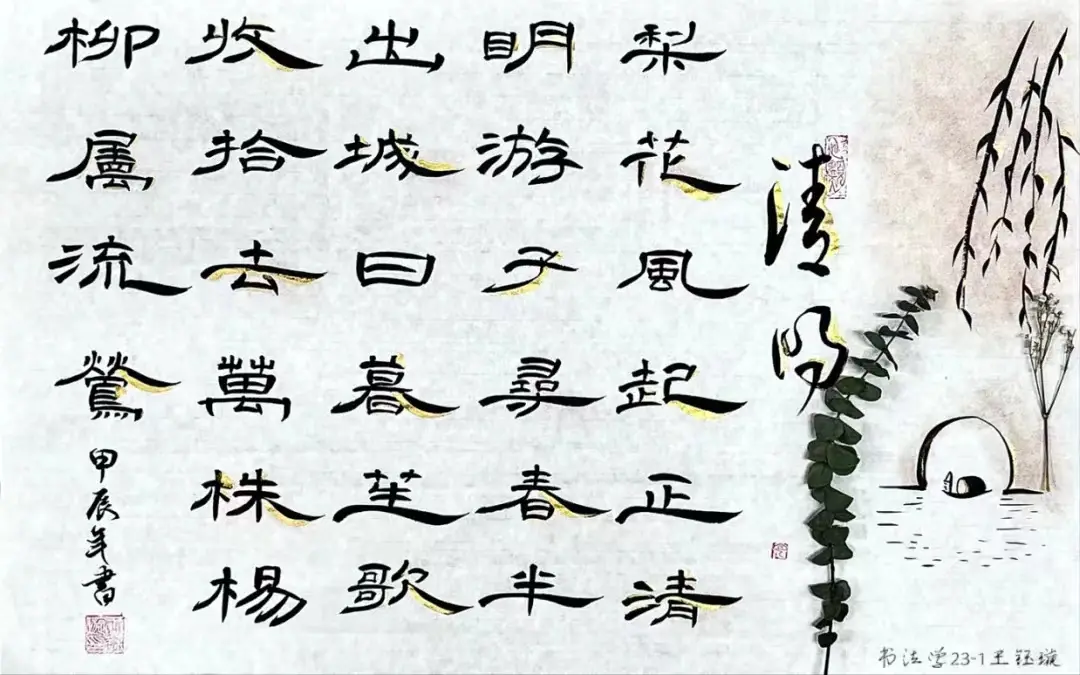 清明
梨花風起正清
明游子尋春半
出城日暮笙歌
收拾去萬株楊
柳屬流鶯
甲辰年書
书法学23-1王钰璇